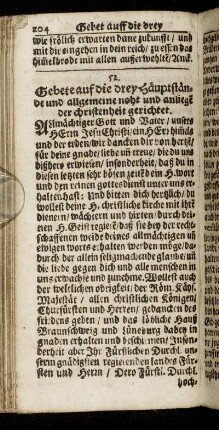 204 Gebet auff die drey
wie frölich erwarten deine zukunfft / und
mit dir eingehen in dein reich / zu essen das
himelbrodt mit allen außerwehlte / Amē.
52.
Gebete auf die drey Häuptstän-
de und allgemeine noht und anligē
der christenheit gerichtet.
Allmächtiger Gott und Vater / unsers
HErrn Jesu Christi / ein HErr himels
und der erden / wir dancken dir von hertzē /
für deine gnade / liebe uñ treue / die du uns
bißhero erwiesen / insonderheit / daß du in
diesen letzten sehr bösen zeitē dein H. wort
und den reinen gottesdienst unter uns er-
halten hast: Und bitten dich hertzlich / du
wollest deine H. christliche kirche mit ihrē
dienern / wächtern und hirten / durch dei-
nen H. Geist regierē / daß sie bey der recht-
schaffenen weide deines allmächtigen uñ
ewigen worts erhalten werden möge / da-
durch der allein seligmachende glaube / uñ
die liebe gegen dich und alle menschen in
uns erwachse und zunehme. Wollest auch
der weltlichen obrigkeit / der Röm. Käys.
Majestät / allen christlichen Königen /
Churfürsten und Herren / gedancken des
friedens geben / und das löbliche Hauß
Braunschweig und Lüneburg dabey in
gnaden erhalten und beschirmen / Inson-
derheit aber Ihr Fürstlichen Durchl. un-
sern gnädigsten regierenden landes Für-
sten und Herrn / Dero Fürstl. Durchl.
hoch-